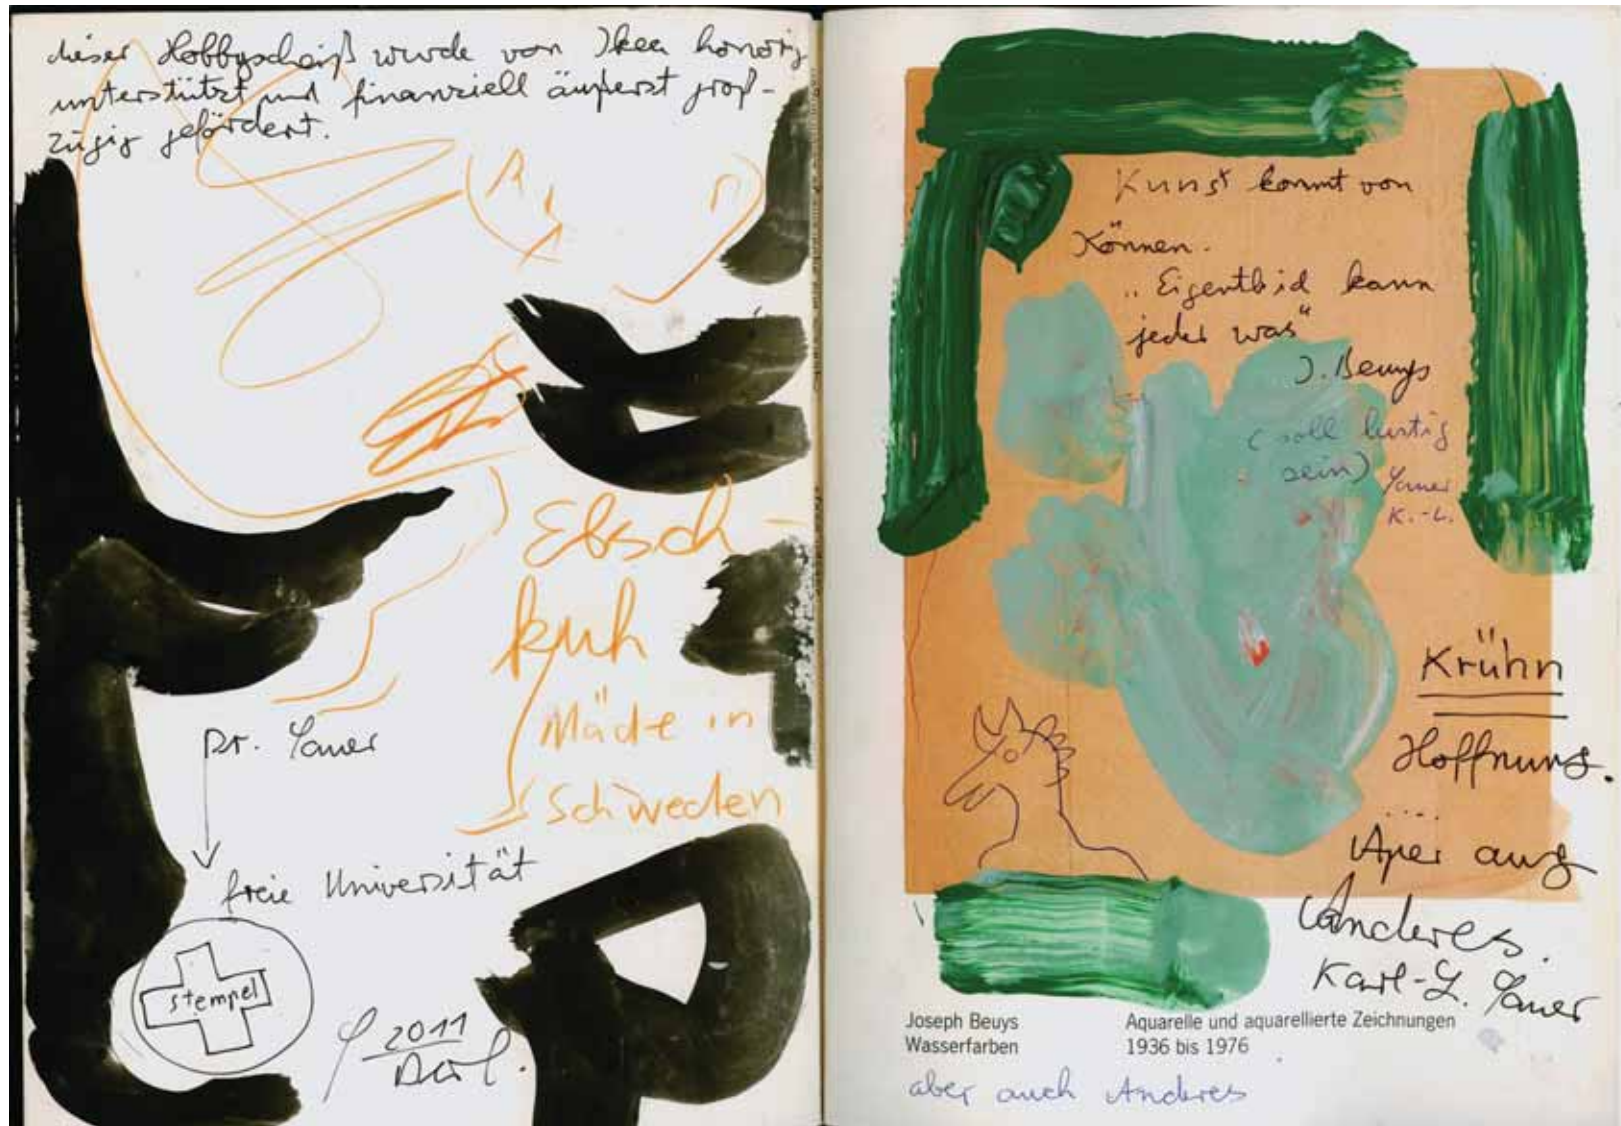 dieser Hobbyscheiß wurde von Ikea honorig
unterstützt und finanziell äußerst groß-
zügig gefördert.
Elsch-
kuh
Mäde in
Schweden
Dr. Sauer
freie Universität
stempel
2011
Kunst kommt von
Können.
„Eigentlid kann
jeder was“
J. Beuys
(soll lustig
sein) Sauer
K.-L.
Krühn
Hoffnung.
Aper aug
Anderes.
Karl-L. Sauer
Joseph Beuys
Wasserfarben
Aquarelle und aquarellierte Zeichnungen
1936 bis 1976
aber auch Anderes